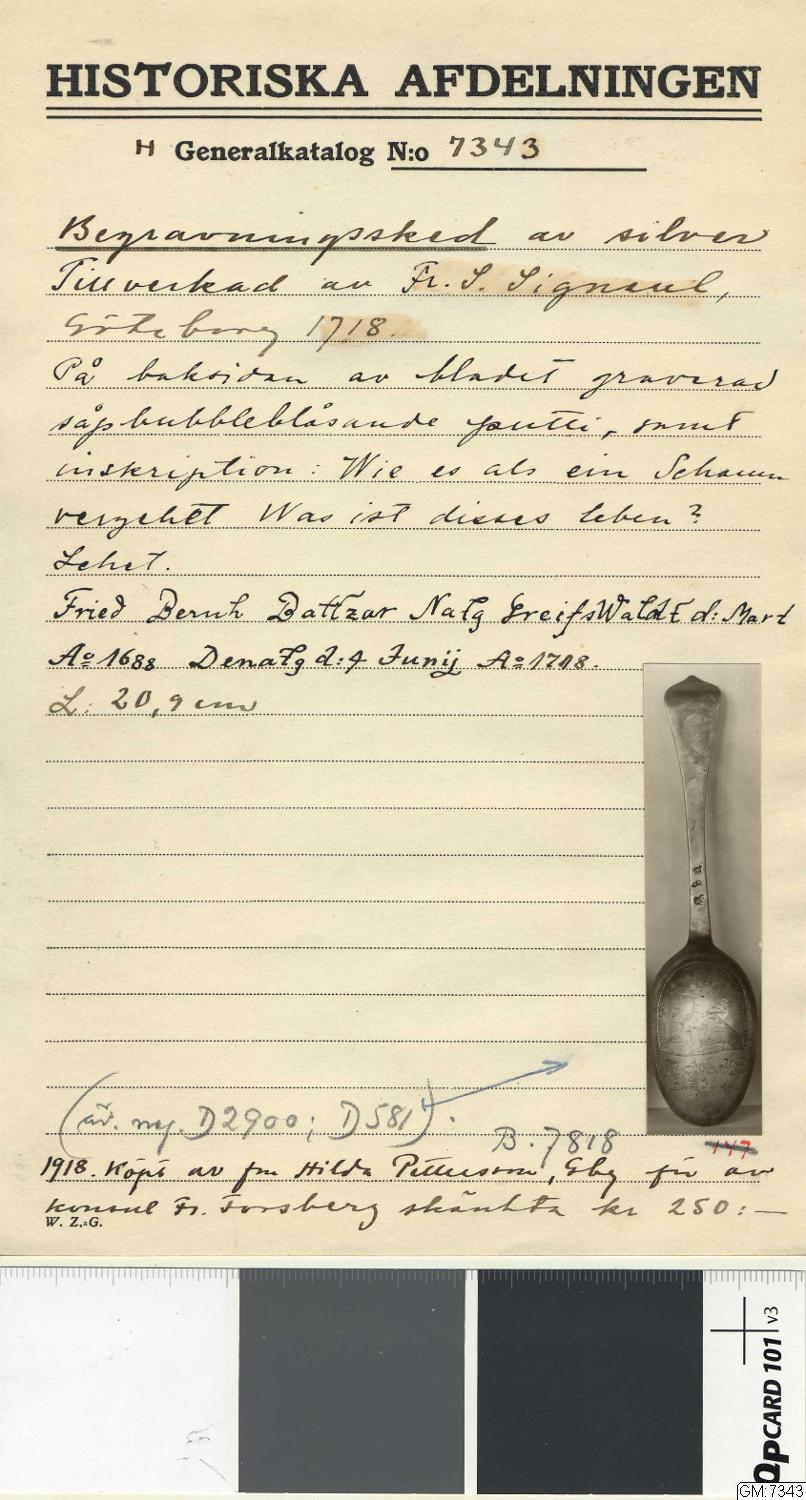 HISTORISKA AFDELNINGEN
H Generalkatalog N:o 7343
Begravningssked av silver
Tillverkad av Fr. S. Signeul,
Göteborg 1718.
På baksidan av bladet graverad
såpbubbleblåsande putti, samt
inskription: Wie es als ein Schaum
vergehtt Was ist disses leben?
Sehet.
Fried Bernh Baltzar Natg GreifsWaldt d: Mart
Ao 1688 Denatg d: 4 Junij Ao 1718.
L: 20,9 cm
(äv. neg. D2900; D581).
B. 7818
147
1918. Köpt av fru Hilda Pettersson, Gbg för av
konsul Fr. Forsberg skänkta kr 250:—
W. Z.=G.
QPCARD 101 v3
GM:7343